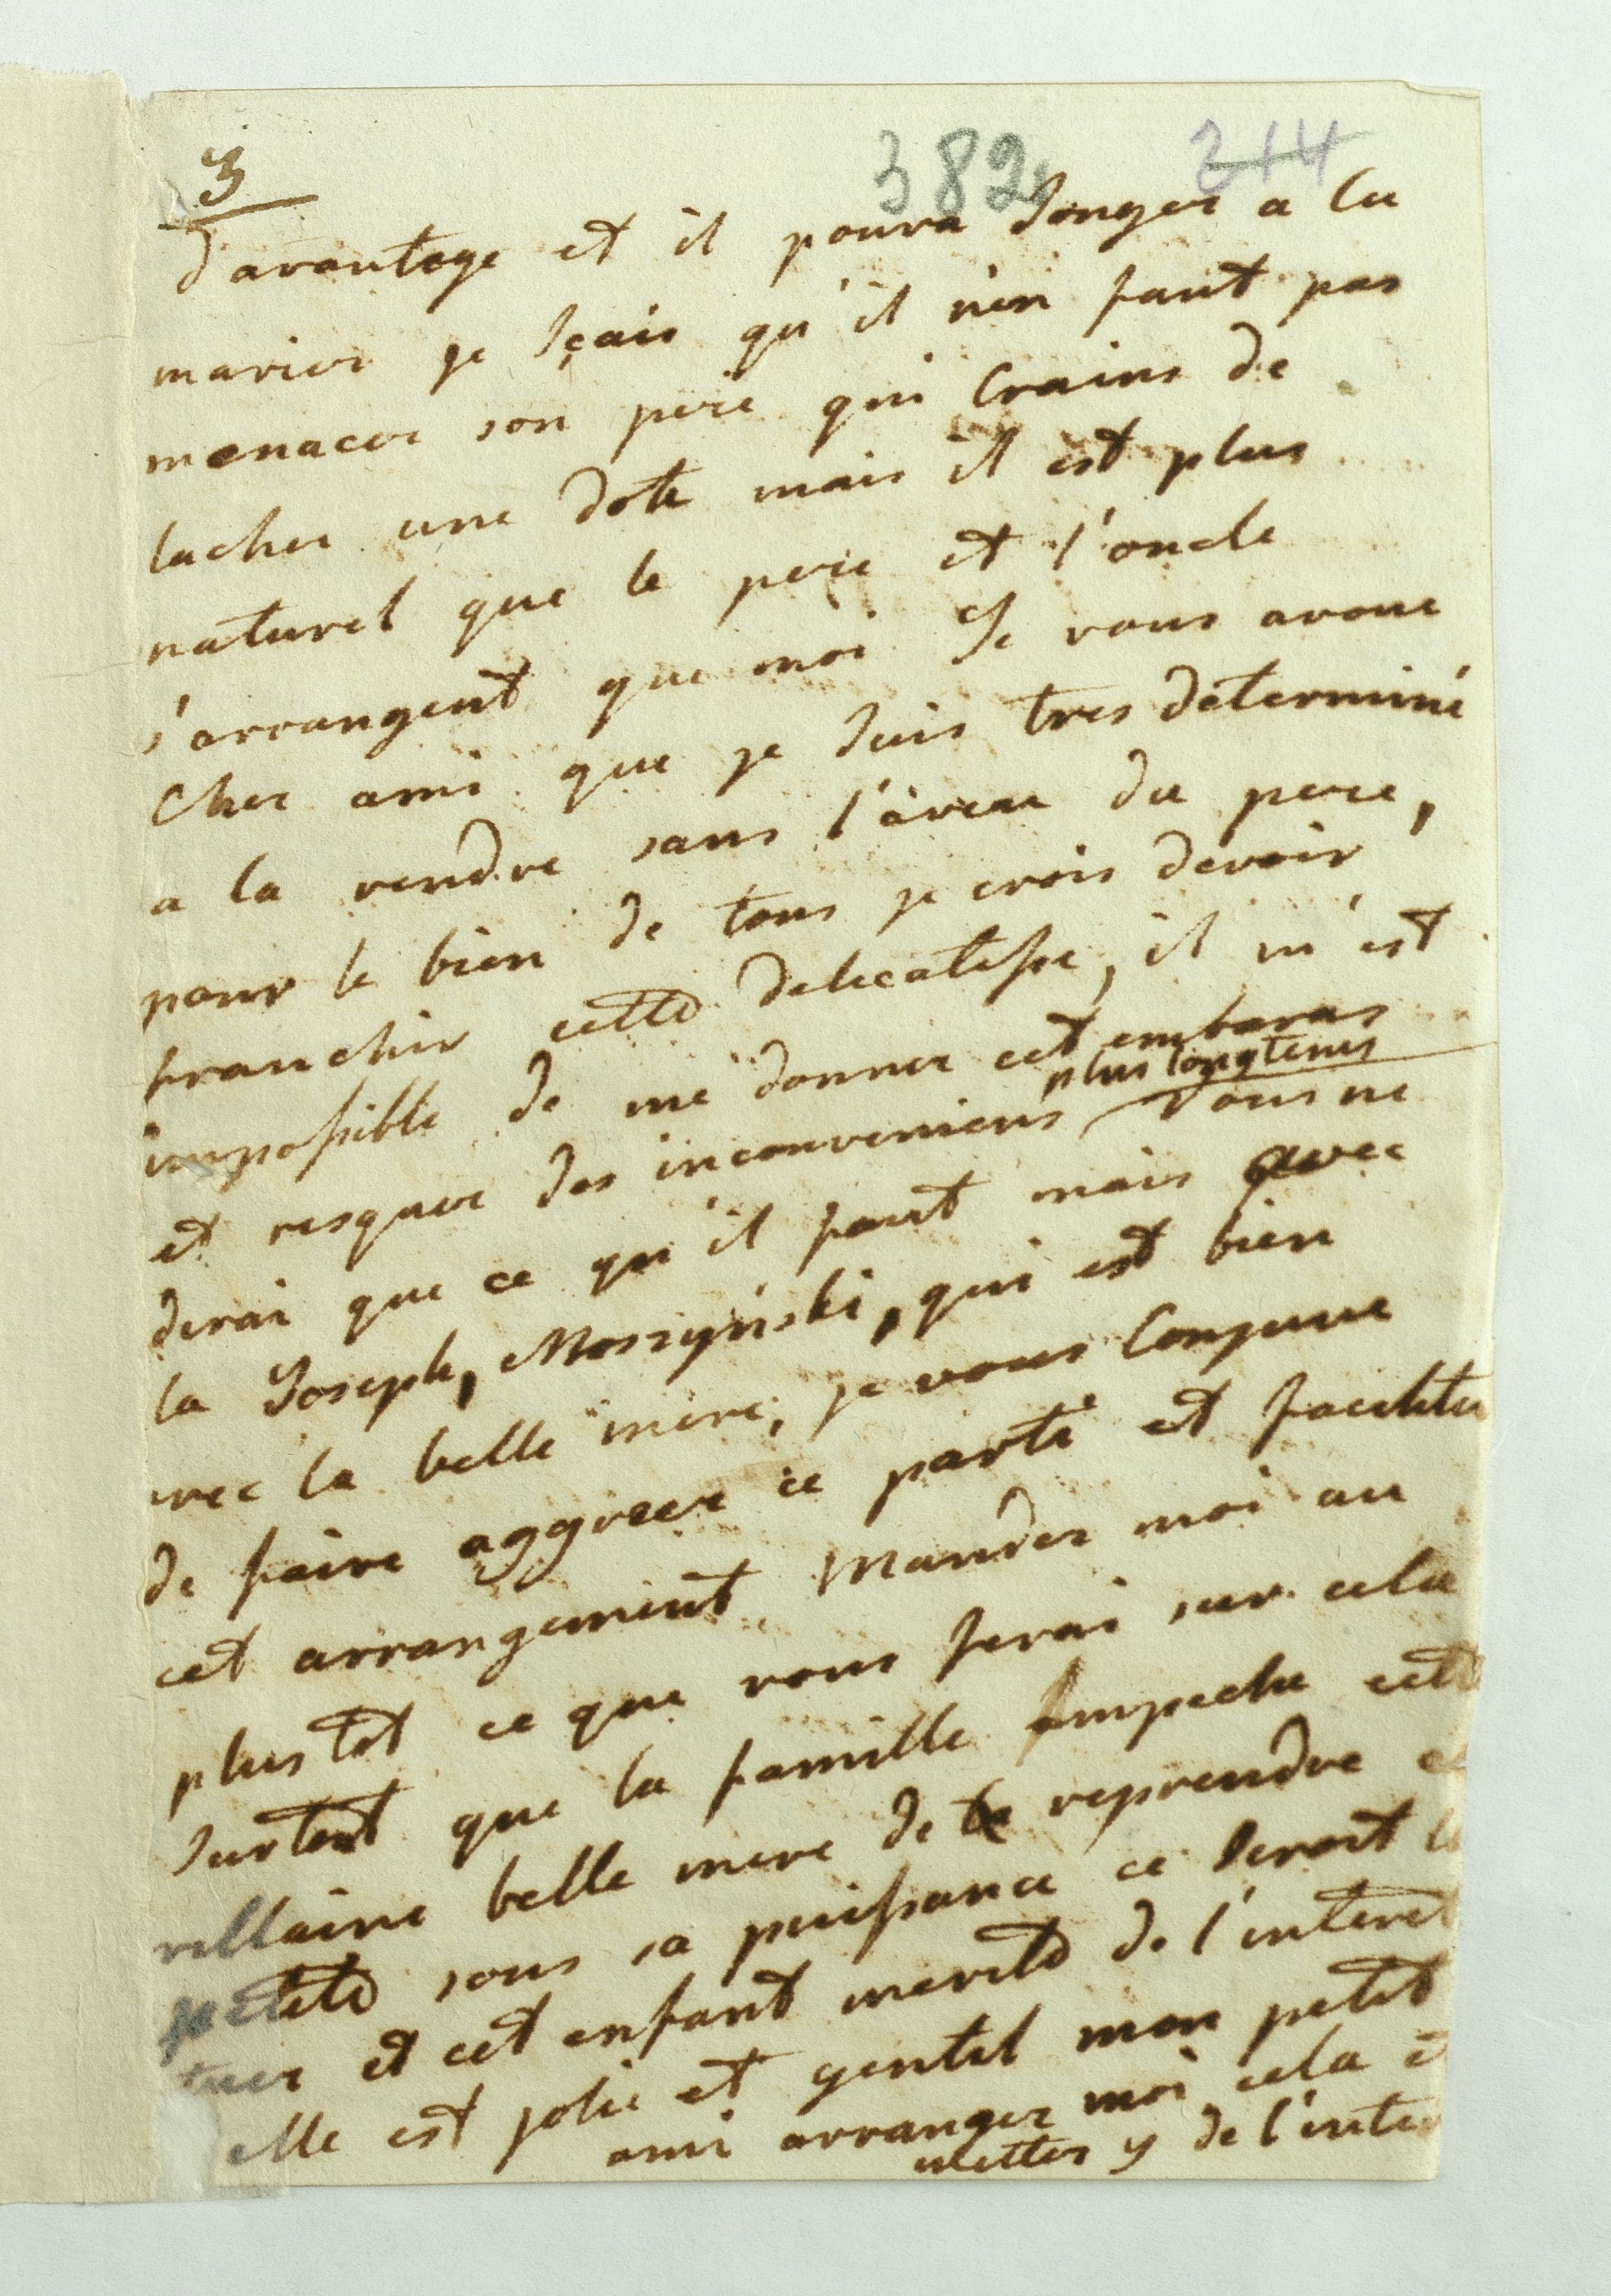 3
382
314
d'avantage et il poura songer a la
marier je sçais qu'il n'en faut pas
menacer son pere qui crains de
lacher une dote mais il est plus
naturel que le pere et l'oncle
s'arrangent que moi Je vous avoue
cher ami que je suis tres determiné
a la rendre sans l'aveu du pere,
pour le bien de tous je crois devoir
franchir cette delicatesse, il m'est
impossible de me donner cet embaras
plus longtems
et risquer des inconveniens Vous ne
dirai que ce qu'il faut mais avec
la Joseph, Moszyński, qui est bien
avec la belle mere, je vous conjure
de faire aggreer ce parti et faciliter
cet arrangement. Mander moi au
plustot ce que vous ferai sur cela
surtout que la famille empeche cette
villaine belle mere de reprendre
sous sa puissance ce seroit la
tuer et cet enfant merite de l'interet
elle est jolie et gentil mon petit
ami arranger moi cela et
metter y de l'inter